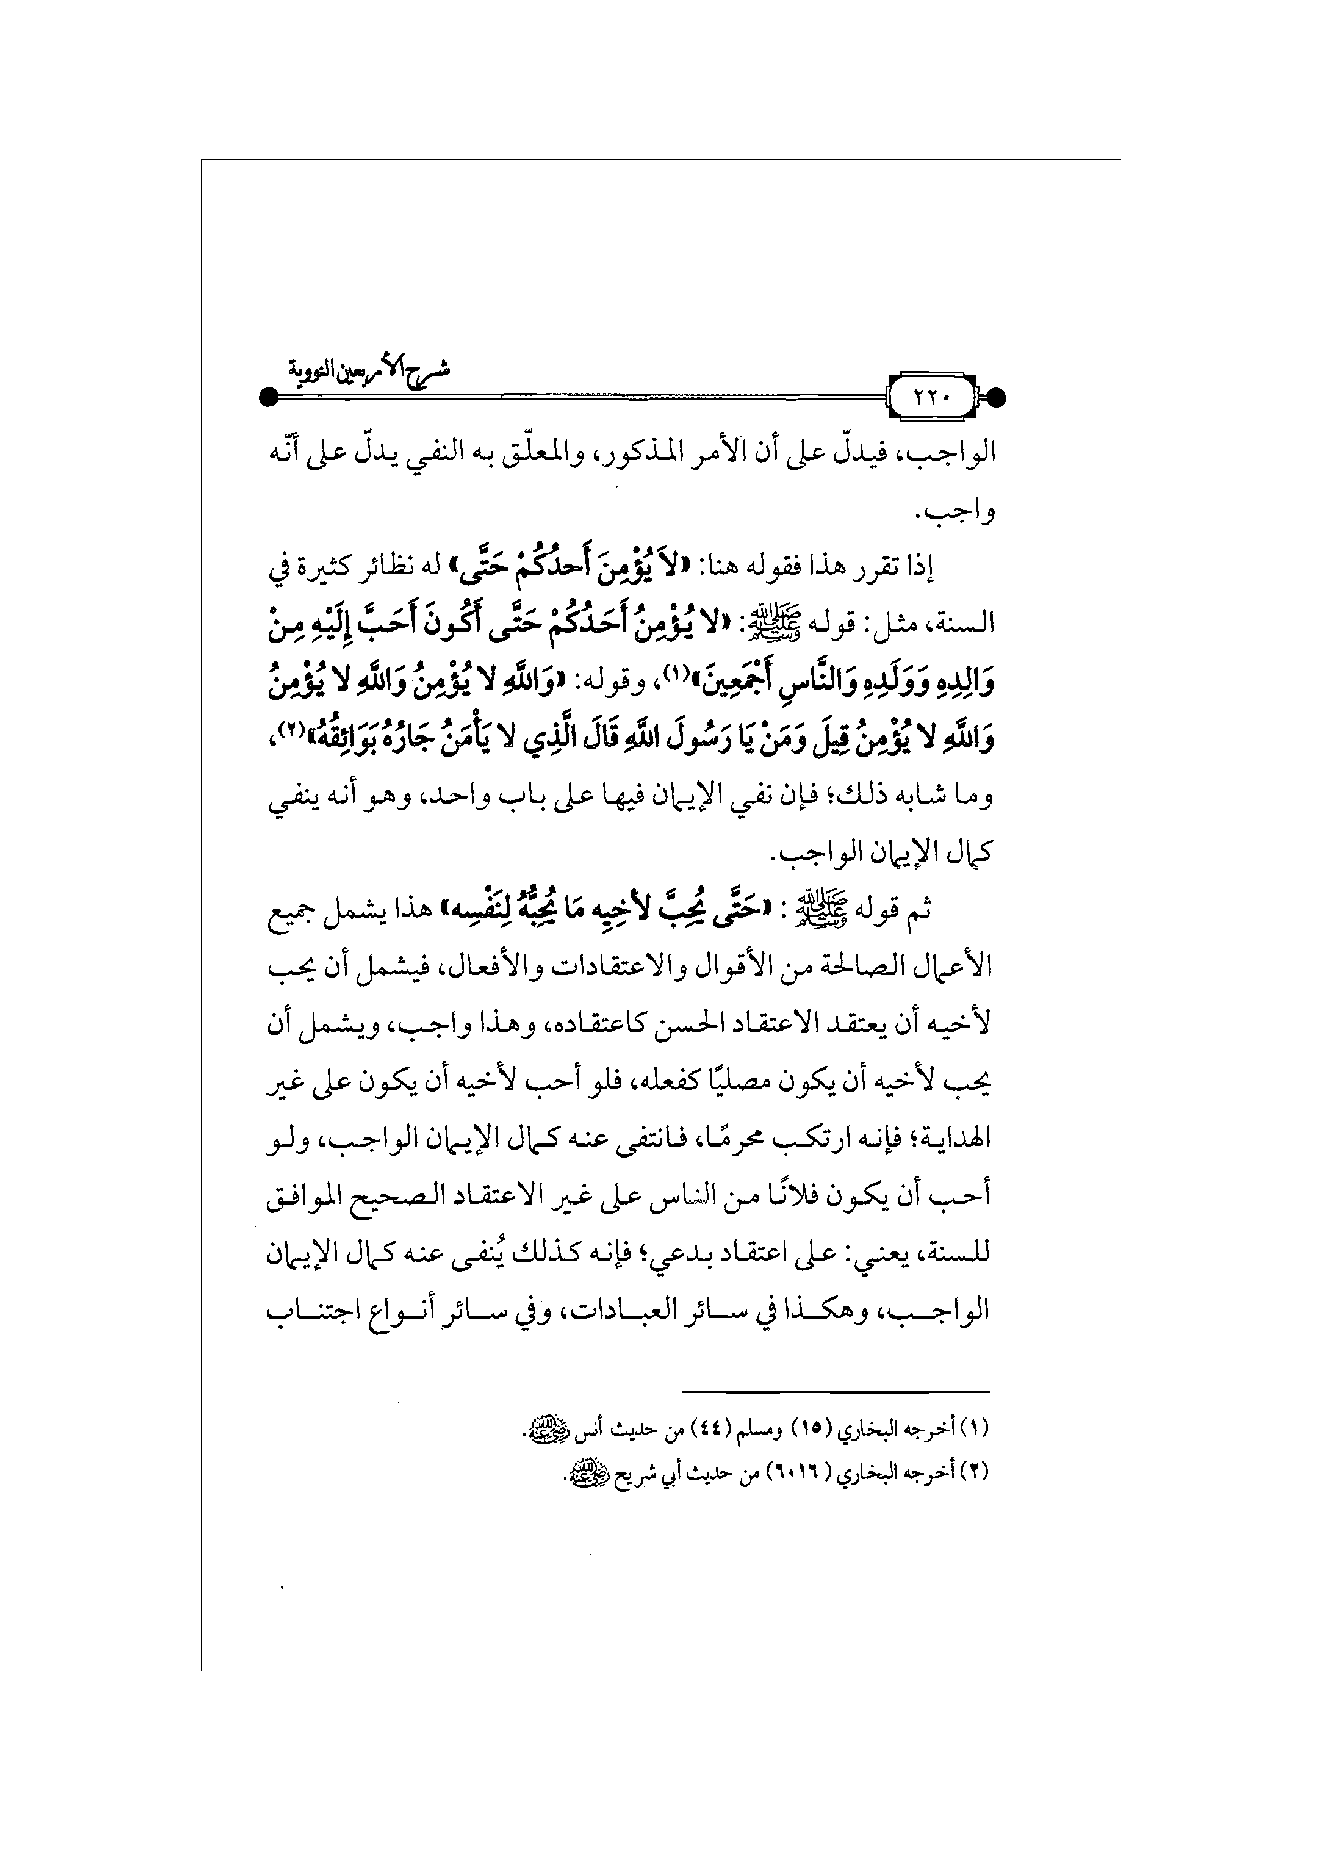 شرح الأربعين النووية
٢٢٠
الواجب، فيدلّ على أن الأمر المذكور، والمعلّق به النفي يدلّ على أنّه
واجب.
إذا تقرر هذا فقوله هنا: «لاَ يُؤْمِنَ أَحدُكُمْ حَتَّى» له نظائر كثيرة في
السنة، مثل: قوله ﷺ: «لا يُؤْمِنُ أَحَدُكُمْ حَتَّى أَكُونَ أَحَبَّ إِلَيْهِ مِنْ
وَالِدِهِ وَوَلَدِهِ وَالنَّاسِ أَجْمَعِينَ»(١)، وقوله: «وَاللَّهِ لا يُؤْمِنُ وَاللَّهِ لا يُؤْمِنُ
وَاللَّهِ لا يُؤْمِنُ قِيلَ وَمَنْ يَا رَسُولَ اللَّهِ قَالَ الَّذِي لا يَأْمَنُ جَارُهُ بَوَائِقُهُ»(٢)،
وما شابه ذلك؛ فإن نفي الإيمان فيها على باب واحد، وهو أنه ينفي
كمال الإيمان الواجب.
ثم قوله ﷺ : «حَتَّى يُحِبَّ لأخِيِه مَا يُحِبُّهُ لِنَفْسِه» هذا يشمل جميع
الأعمال الصالحة من الأقوال والاعتقادات والأفعال، فيشمل أن يحب
لأخيه أن يعتقد الاعتقاد الحسن كاعتقاده، وهذا واجب، ويشمل أن
يحب لأخيه أن يكون مصليًا كفعله، فلو أحب لأخيه أن يكون على غير
الهداية؛ فإنه ارتكب محرمًا، فانتفى عنه كمال الإيمان الواجب، ولو
أحب أن يكون فلانًا من الناس على غير الاعتقاد الصحيح الموافق
للسنة، يعني: على اعتقاد بدعي؛ فإنه كذلك يُنفى عنه كمال الإيمان
الواجب، وهكذا في سائر العبادات، وفي سائر أنواع اجتناب
(١) أخرجه البخاري (١٥) ومسلم (٤٤) من حديث أنس رضي الله عنه.
(٢) أخرجه البخاري (٦٠١٦) من حديث أبي شريح رضي الله عنه.